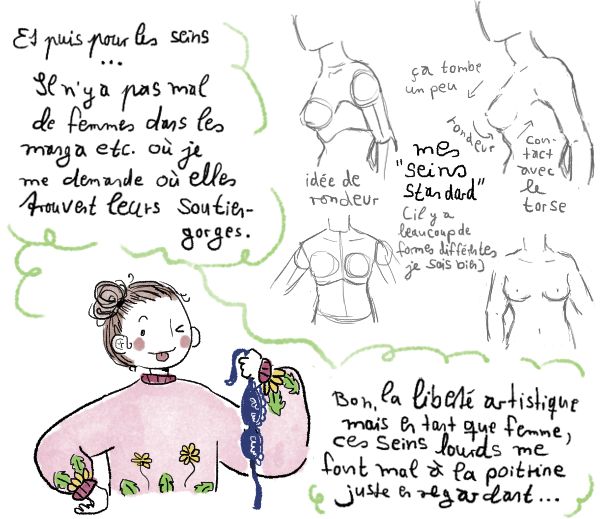 Et puis pour les seins
...
Il n'y a pas mal
de femmes dans les
manga etc. où je
me demande où elles
trouvent leurs soutien-
gorges.
ça tombe
un peu
rondeur
con-
tact
avec
le
torse
idée de
rondeur
mes
"seins
standard"
(il y a
beaucoup de
formes différentes
je sais bien)
Bon, la liberté artistique
mais en tant que femme,
ces seins lourds me
font mal à la poitrine
juste en regardant...